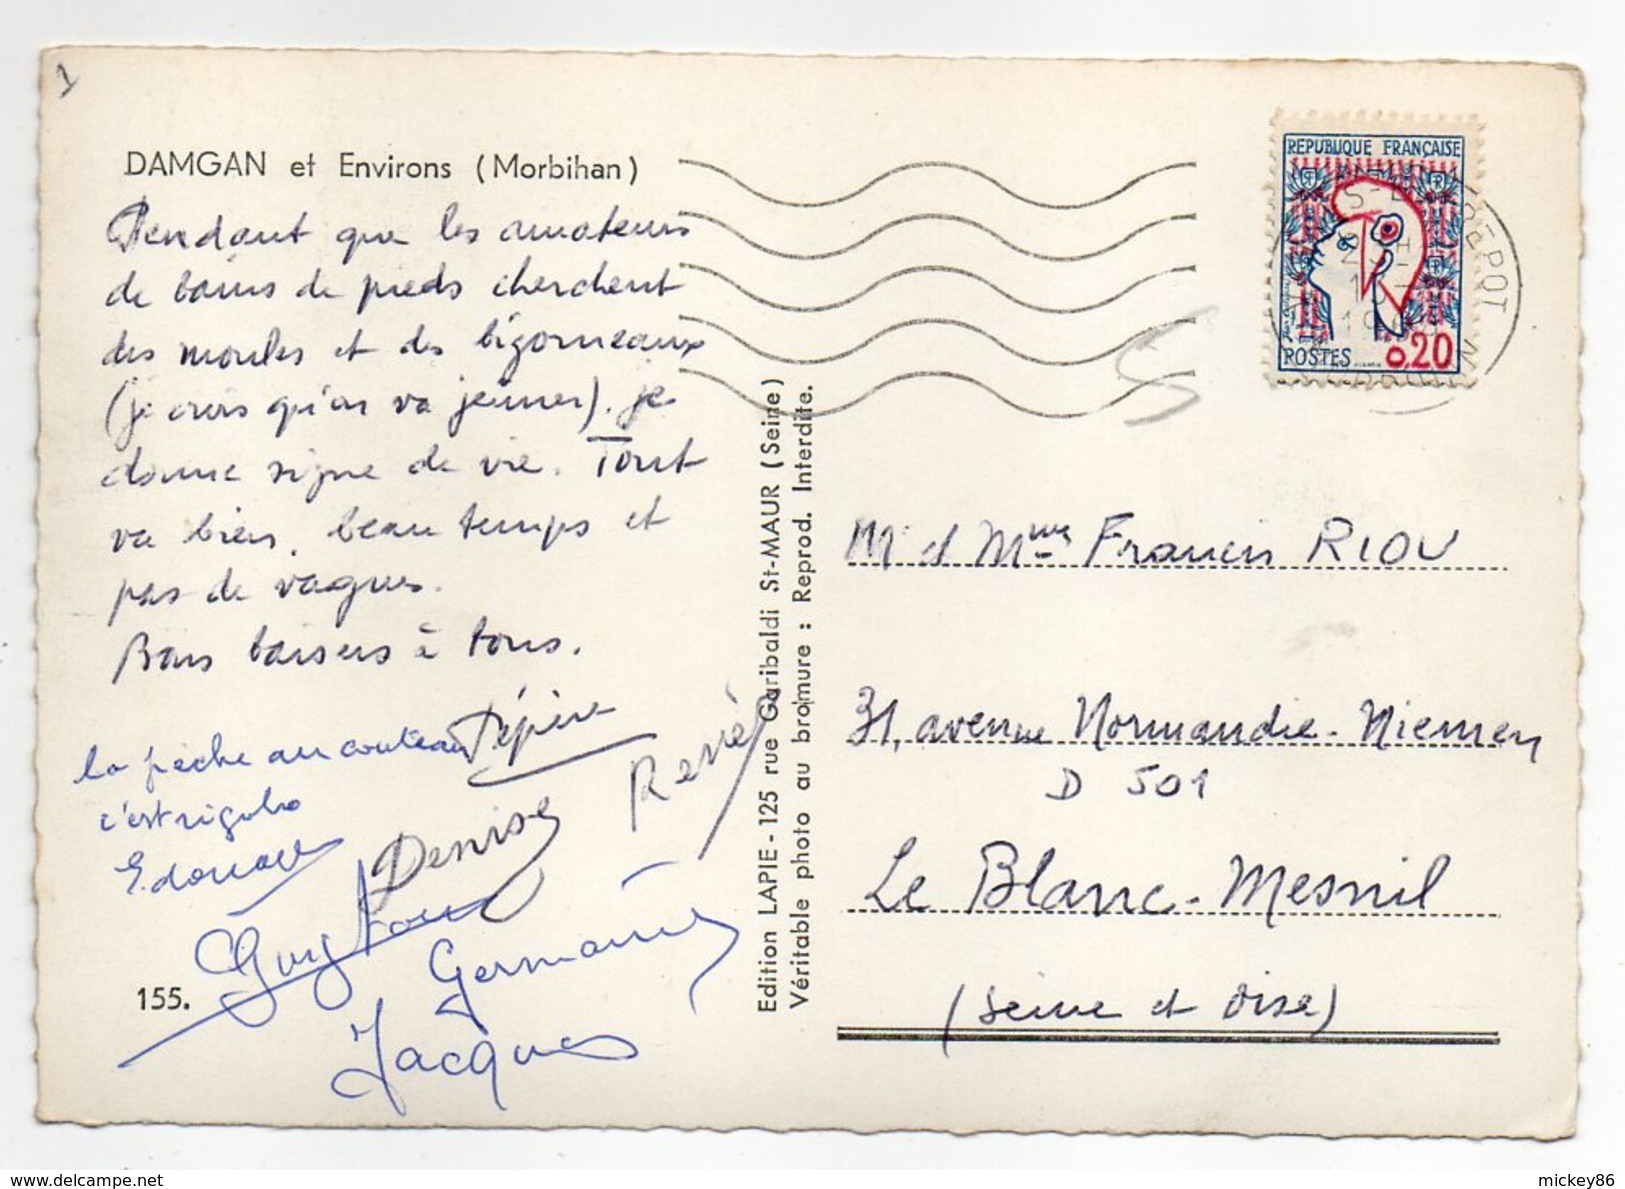 1
DAMGAN et Environs (Morbihan)
Pendant que les amateurs
de bains de pieds cherchent
des moules et des bigorneaux
(je crois qu'on va jeuner). je
donne signe de vie. Tout
va bien, beau temps et
pas de vagues.
Bons baisers à tous.
Pépère
la pêche au couteau
c'est rigolo
Edouard
Denise
René
Guy
Germaine
Jacques
155.
Edition LAPIE - 125 rue Garibaldi St-MAUR (Seine)
Véritable photo au bromure : Reprod. Interdite.
REPUBLIQUE FRANÇAISE
POSTES
0,20
DÉPOT
M. et Mme Francis RIOU
31, avenue Normandie-Niemen
D 501
Le Blanc-Mesnil
(Seine et Oise)
mickey86